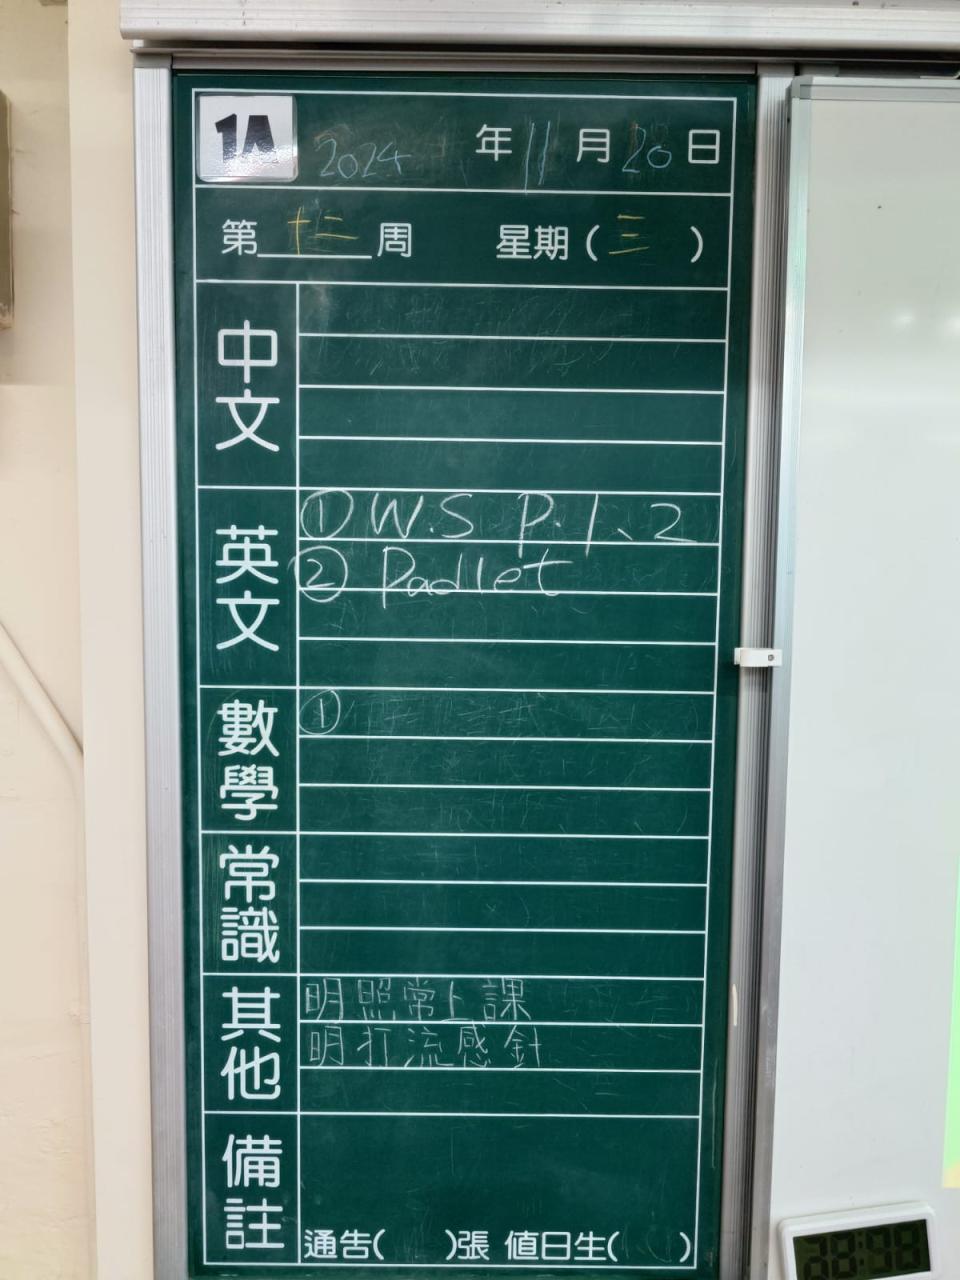 1A 2024 年 11 月 20 日
第 十二 周 星期 ( 三 )
中文
英文
① W.S P.1、2
② Padlet
數學
①
常識
其他
明照常上課
明打流感針
備註
通告( )張 值日生( )